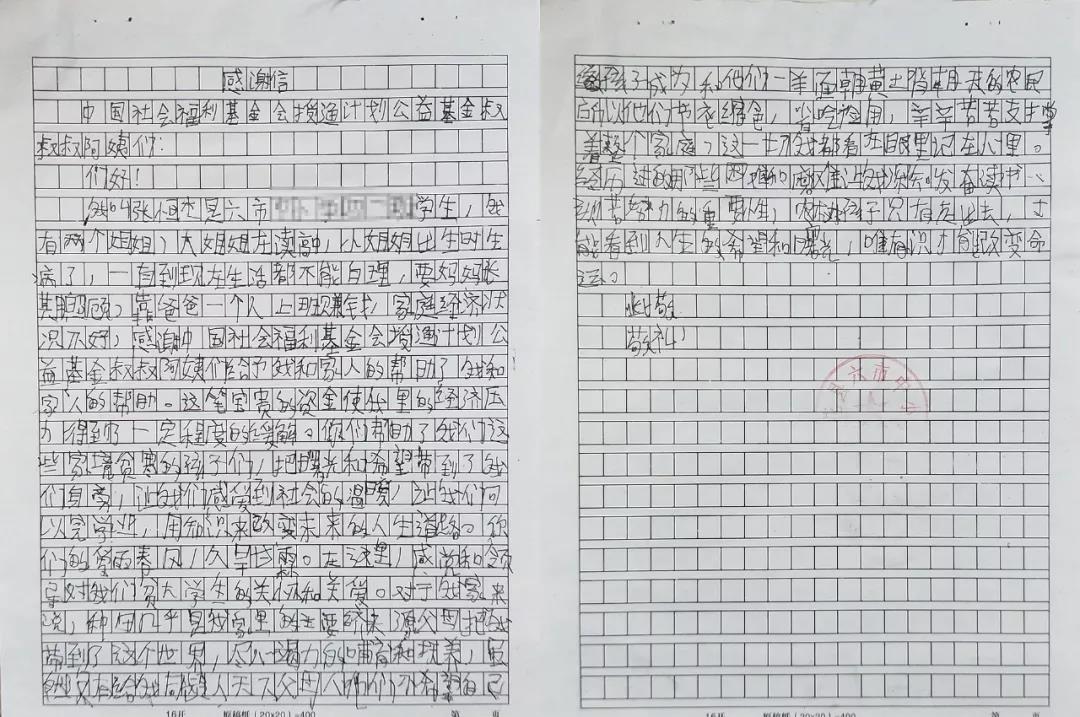 感谢信
中国社会福利基金会授通计划公益基金叔
叔叔阿姨们：
们好！
我叫张 是六市 学生，我
有两个姐姐，大姐姐在读高中，小姐姐出生时生
病了，一直到现在生活都不能自理，要妈妈张
其照顾，靠爸爸一个人上班赚钱，家庭经济状
况不好，感谢中国社会福利基金会授通计划公
益基金叔叔阿姨们给予我和家人的帮助了我和
家人的帮助。这笔宝贵的资金使我里的经济压
力得到了一定程度的缓解。你们帮助了我们这
些家境贫寒的孩子们，把曙光和希望带到了我
们身旁，让我们感受到社会的温暖，让我们可
以完学业，用知识来改变未来的人生道路。你
们的爱而春风，久旱甘霖。在这里，感党和领
导对我们贫大学生的关怀和关爱。对于我家来
说，种田几乎是我家里的主要经济来源父母把我
带到了这个世界，尽心竭力的哺育和抚养，虽
然没有给我 天下父母 他们不希望自己
孩子成为和他们一羊面朝黄土背朝天的农民
所以他们节衣缩食，省吃俭用，辛辛苦苦支撑
着整个家庭，这一切我都看在眼里记在心里。
经历过的那些困难和 让我深 发奋读书
刻苦努力的重要性，农村孩子只有走出去，才
能看到人生的希望和曙光，唯有识才能改变命
运。
此致
敬礼！
六市
16开 原稿纸（20×20）=400 第 页
16开 原稿纸（20×20）=400 第 页